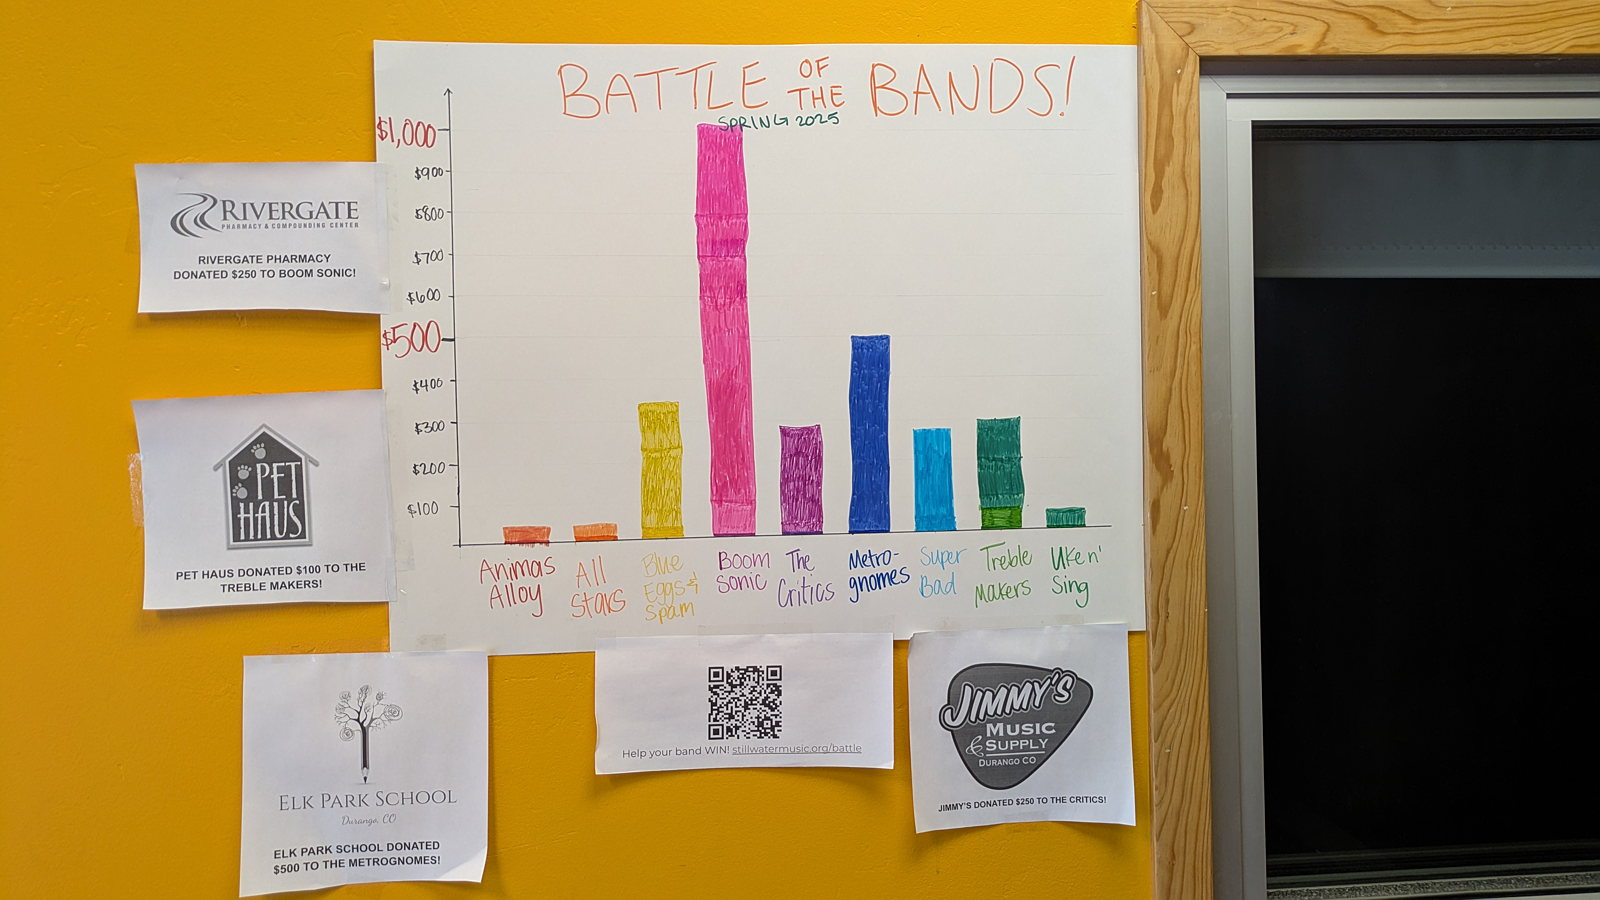 BATTLE OF THE BANDS!
SPRING 2025
$1,000
$900
$800
$700
$600
$500
$400
$300
$200
$100
Animas Alloy
All Stars
Blue Eggs & Spam
Boom Sonic
The Critics
Metro-gnomes
Super Bad
Treble Makers
Uke n' Sing
RIVERGATE
PHARMACY & COMPOUNDING CENTER
RIVERGATE PHARMACY
DONATED $250 TO BOOM SONIC!
PET
HAUS
PET HAUS DONATED $100 TO THE
TREBLE MAKERS!
ELK PARK SCHOOL
Durango, CO
ELK PARK SCHOOL DONATED
$500 TO THE METROGNOMES!
Help your band WIN! stillwatermusic.org/battle
JIMMY'S
MUSIC
& SUPPLY
DURANGO CO
JIMMY'S DONATED $250 TO THE CRITICS!